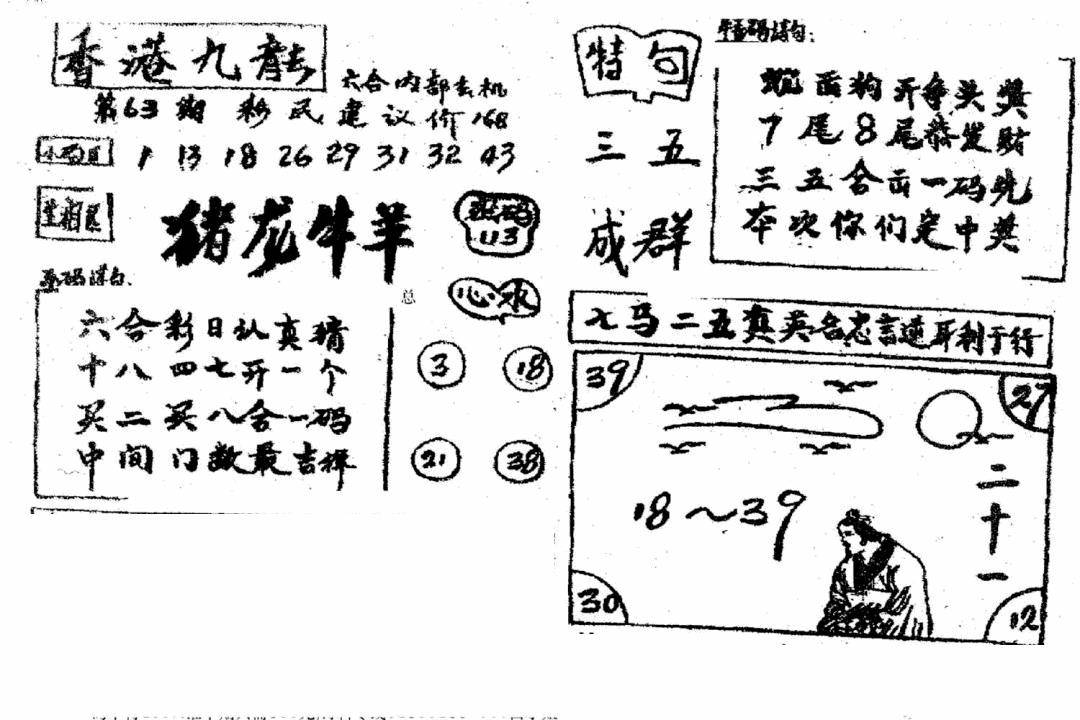 香港九龍
六合内部玄机
第63期 彩民建议价168
1 13 18 26 29 31 32 43
生肖区
猪龙牛羊
113
总
心水
六合彩日认真猜
十八四七开一个
买二买八合一码
中间门数最吉祥
3 18
21 38
特句
三五
成群
狗开争头奖
7尾8尾恭发财
三五合击一码先
本次你们定中奖
七马二五真英名忠言逆耳利于行
39 27
18~39
二十一
30 12